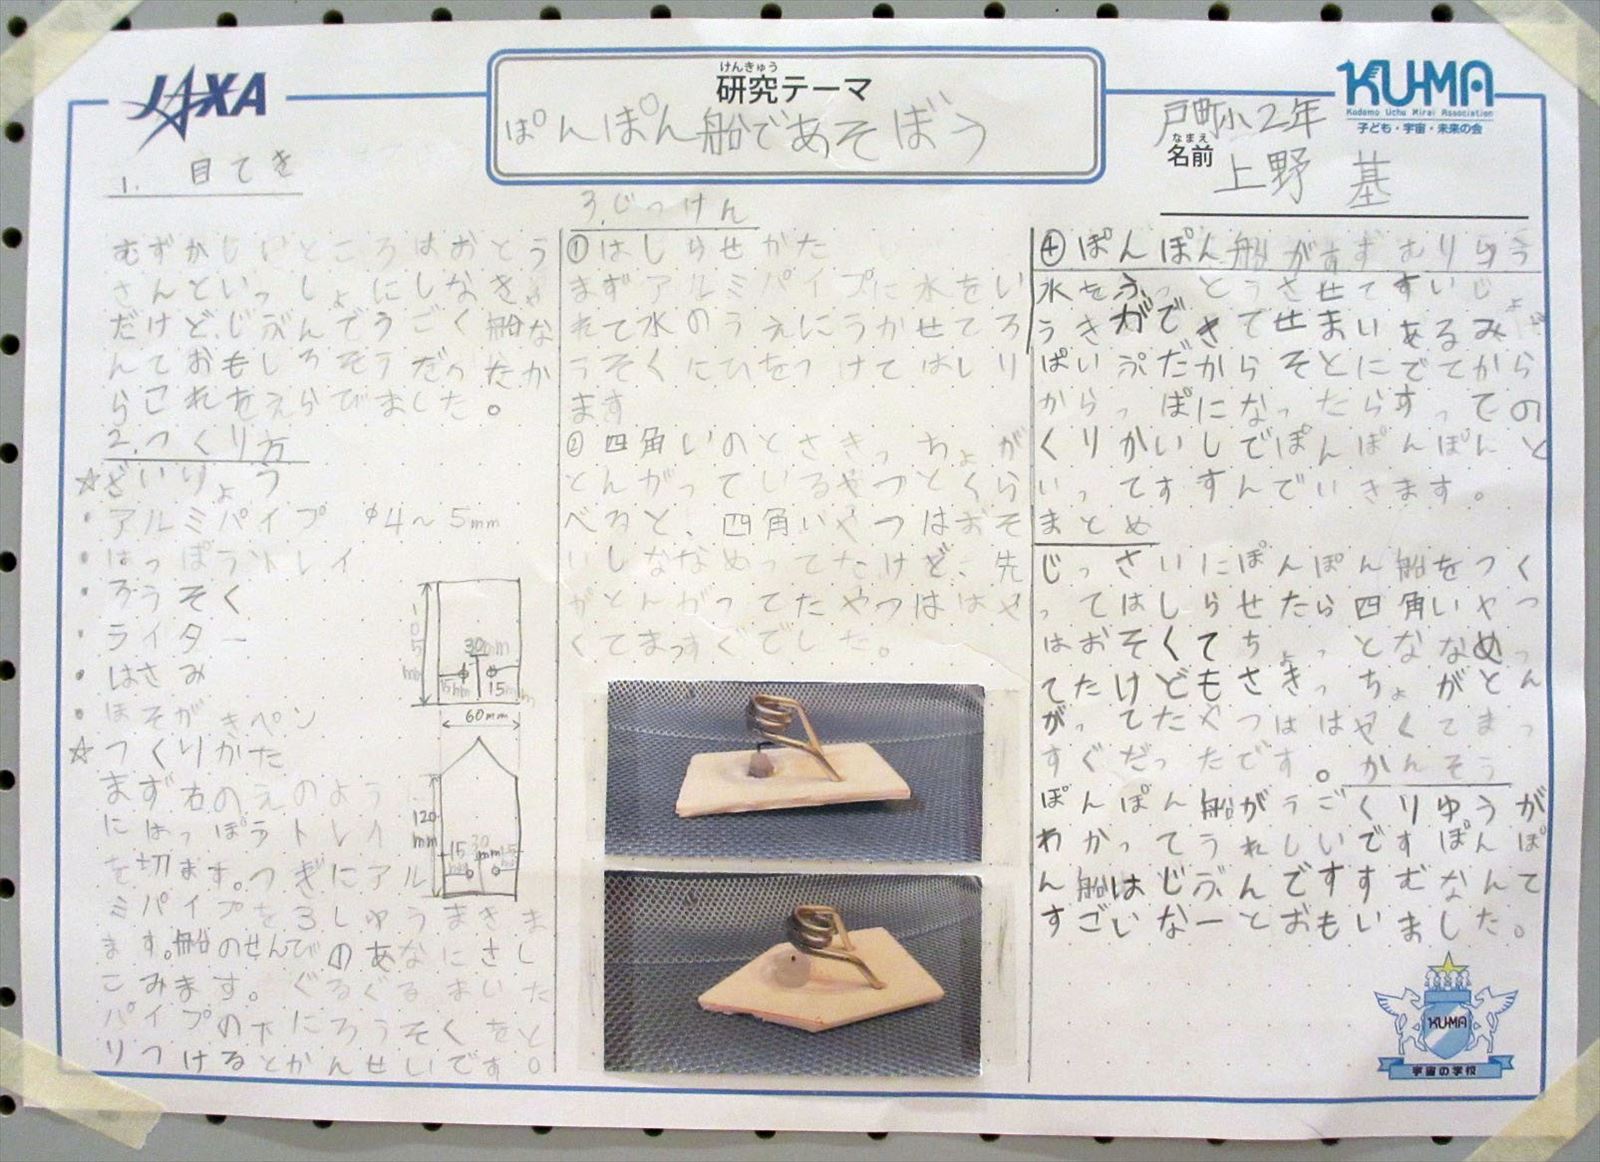 JAXA
けんきゅう
研究テーマ
ぽんぽん船であそぼう
KU-MA
Kodomo Uchu Mirai Association
子ども・宇宙・未来の会
戸町小2年
なまえ
名前
上野 基
1. 目てき
むずかしいところはおとう
さんといっしょにしなきゃ
だけど、じぶんでうごく船な
んておもしろそうだったか
らこれをえらびました。
2.つくり方
☆ざいりょう
・アルミパイプ φ4～5mm
・はっぽうトレイ
・ろうそく
・ライター
・はさみ
・ほそがきペン
☆つくりかた
まず右のえのよう
にはっぽうトレイ
を切ます。つぎにアル
ミパイプを3しゅうまきま
ます。船のせんびのあなにさし
こみます。ぐるぐるまいた
パイプの下にろうそくをと
りつけるとかんせいです。
150mm
30mm
15mm
15mm
60mm
120
mm
15
mm
30
mm
15
mm
3.じっけん
①はしらせかた
まずアルミパイプに水をい
れて水のうえにうかせてろ
うそくにひをつけてはしり
ます
②四角いのとさきっちょが
とんがっているやつとくら
べると、四角いやつはおそ
いしななめってたけど、先
がとんがってたやつははや
くてまっすぐでした。
④ぽんぽん船がすすむりゆう
水をふっとうさせてすいじょ
うきができてせまいあるみ
ぱいぷだからそとにでてから
からっぽになったらすっての
くりかいしでぽんぽんぽんと
いってすすんでいきます。
まとめ
じっさいにぽんぽん船をつく
ってはしらせたら四角いやつ
はおそくてちょっとななめっ
てたけどもさきっちょがとん
がってたやつははやくてまっ
すぐだったです。かんそう
ぽんぽん船がうごくりゆうが
わかってうれしいですぽんぽ
ん船はじぶんですすむなんて
すごいなーとおもいました。
KU-MA
宇宙の学校